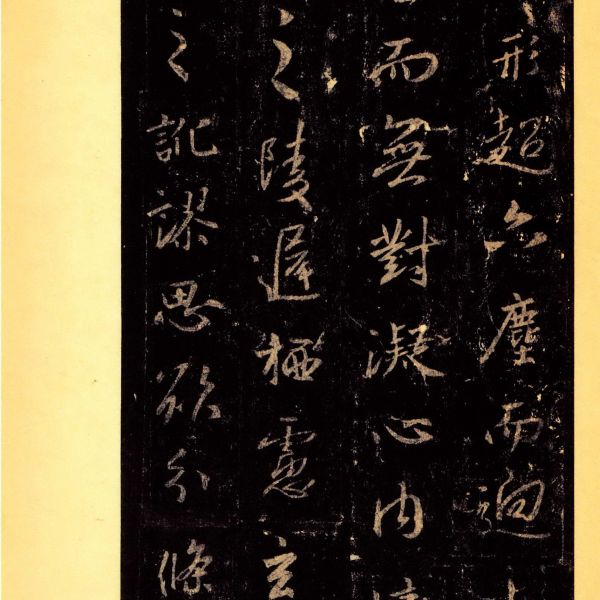 形超六塵而迥
而無對凝心內
之陵遲栖慮玄
之訛謬思欲分條